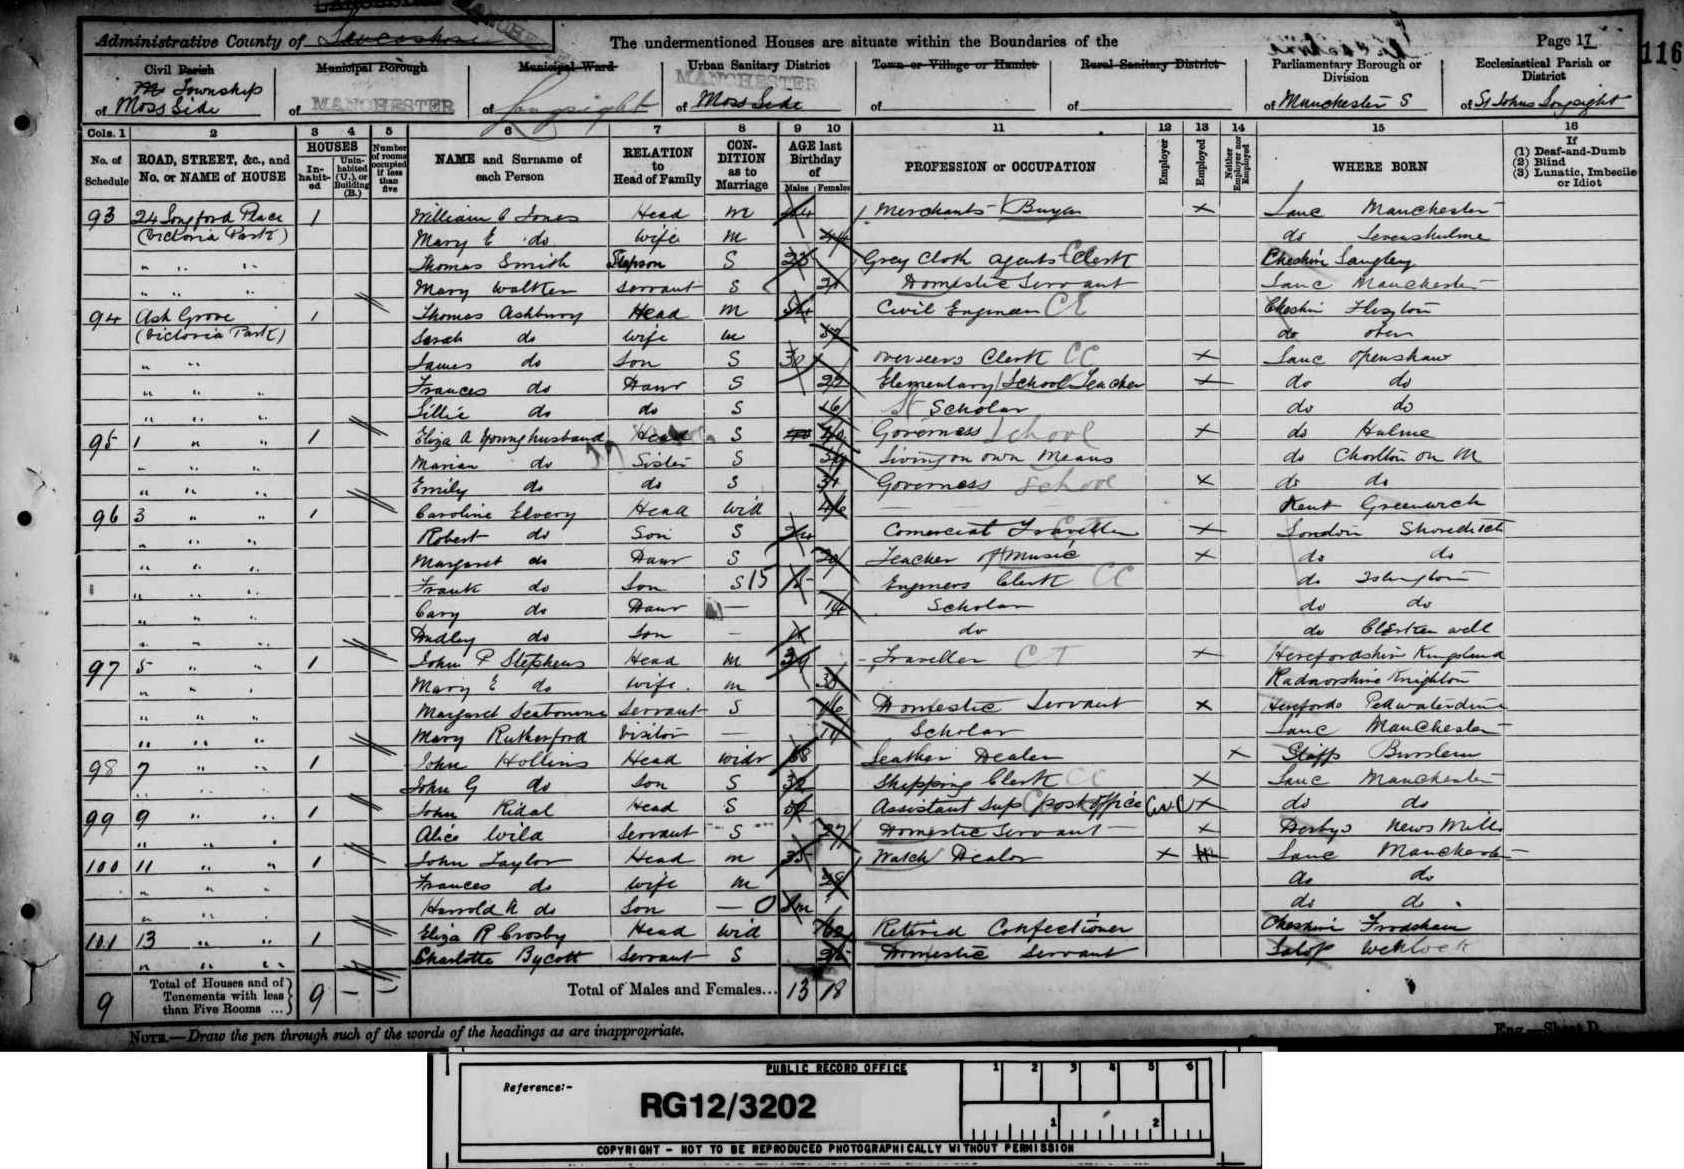 Administrative County of Lancashire
The undermentioned Houses are situate within the Boundaries of the
Page 17
116
Civil Parish
Municipal Borough
Municipal Ward
Urban Sanitary District
Town or Village or Hamlet
Rural Sanitary District
Parliamentary Borough or Division
Ecclesiastical Parish or District
Township
of Moss Side
of MANCHESTER
of Longsight
MANCHESTER
of Moss Side
of
of
of Manchester S
of St Johns Longsight
Cols. 1 2 3 4 5 6 7 8 9 10 11 12 13 14 15 16
No. of Schedule
ROAD, STREET, &c., and No. or NAME of HOUSE
HOUSES
Inhabited
Uninhabited (U.), or Building (B.)
Number of rooms occupied if less than five
NAME and Surname of each Person
RELATION to Head of Family
CONDITION as to Marriage
AGE last Birthday of
Males Females
PROFESSION or OCCUPATION
Employer
Employed
Neither Employer nor Employed
WHERE BORN
If
(1) Deaf-and-Dumb
(2) Blind
(3) Lunatic, Imbecile or Idiot
93 24 Longford Place 1 William C Jones Head M 44 Merchants Buyer X Lanc Manchester
(Victoria Park) Mary E do Wife M 44 do Levenshulme
" " " Thomas Smith Stepson S Grey Cloth Agents Clerk Cheshire Langley
" " " Mary Walker Servant S 21 Domestic Servant Lanc Manchester
94 Ash Grove 1 Thomas Ashbury Head M 54 Civil Engineer CE Cheshire
(Victoria Park) Sarah do Wife M do
" " James do Son S 30 Overseers Clerk CC X Lanc Openshaw
" " " Frances do Daur S 22 Elementary School Teacher X do do
" " " Lillie do do S 16 Scholar do do
95 1 " " 1 Eliza A Younghusband Head S Governess School X do Hulme
" " " Marian do Sister S Living on own means do Chorlton on M
" " " Emily do do S 31 Governess School X do do
96 3 " " 1 Caroline Elvery Head Wid 46 Kent Greenwich
" " " Robert do Son S 24 Comercial Traveller X London Shoreditch
" " " Margaret do Daur S 20 Teacher of Music X do do
" " " Frank do Son S 15 Engineers Clerk CC do Islington
" " " Cary do Daur — 14 Scholar do do
" " " Dudley do Son — 11 do do Clerkenwell
97 5 " " 1 John P Stephens Head M 39 Traveller CT X Herefordshire Kingsland
" " " Mary E do Wife M 38 Radnorshire Knighton
" " " Margaret Servant S 16 Domestic Servant X Herefords
" " " Mary Rutherford Visitor — 14 Scholar Lanc Manchester
98 7 " " 1 John Hollins Head Widr 68 Leather Dealer X Staffs Burslem
" " " John G do Son S 32 Shipping Clerk CC X Lanc Manchester
99 9 " " 1 John Ridal Head S Assistant Sup Post Office X do do
" " " Alice Wild Servant S 27 Domestic Servant X Derbys News Mills
100 11 " " 1 John Taylor Head M 35 Watch Dealer X Lanc Manchester
" " " Frances do Wife M 38 do do
" " " Harrold R do Son — 0 do do
101 13 " " 1 Eliza R Crosby Head Wid Retired Confectioner Cheshire Frodsham
" " " Charlotte Bycott Servant S Domestic Servant Salop Wenlock
9 Total of Houses and of Tenements with less than Five Rooms ...} 9 — — Total of Males and Females... 13 18
NOTE.—Draw the pen through such of the words of the headings as are inappropriate.
Eng.—Sheet D.
PUBLIC RECORD OFFICE
Reference:-
RG12/3202
1 2 3 4 5 6
1 2
COPYRIGHT - NOT TO BE REPRODUCED PHOTOGRAPHICALLY WITHOUT PERMISSION